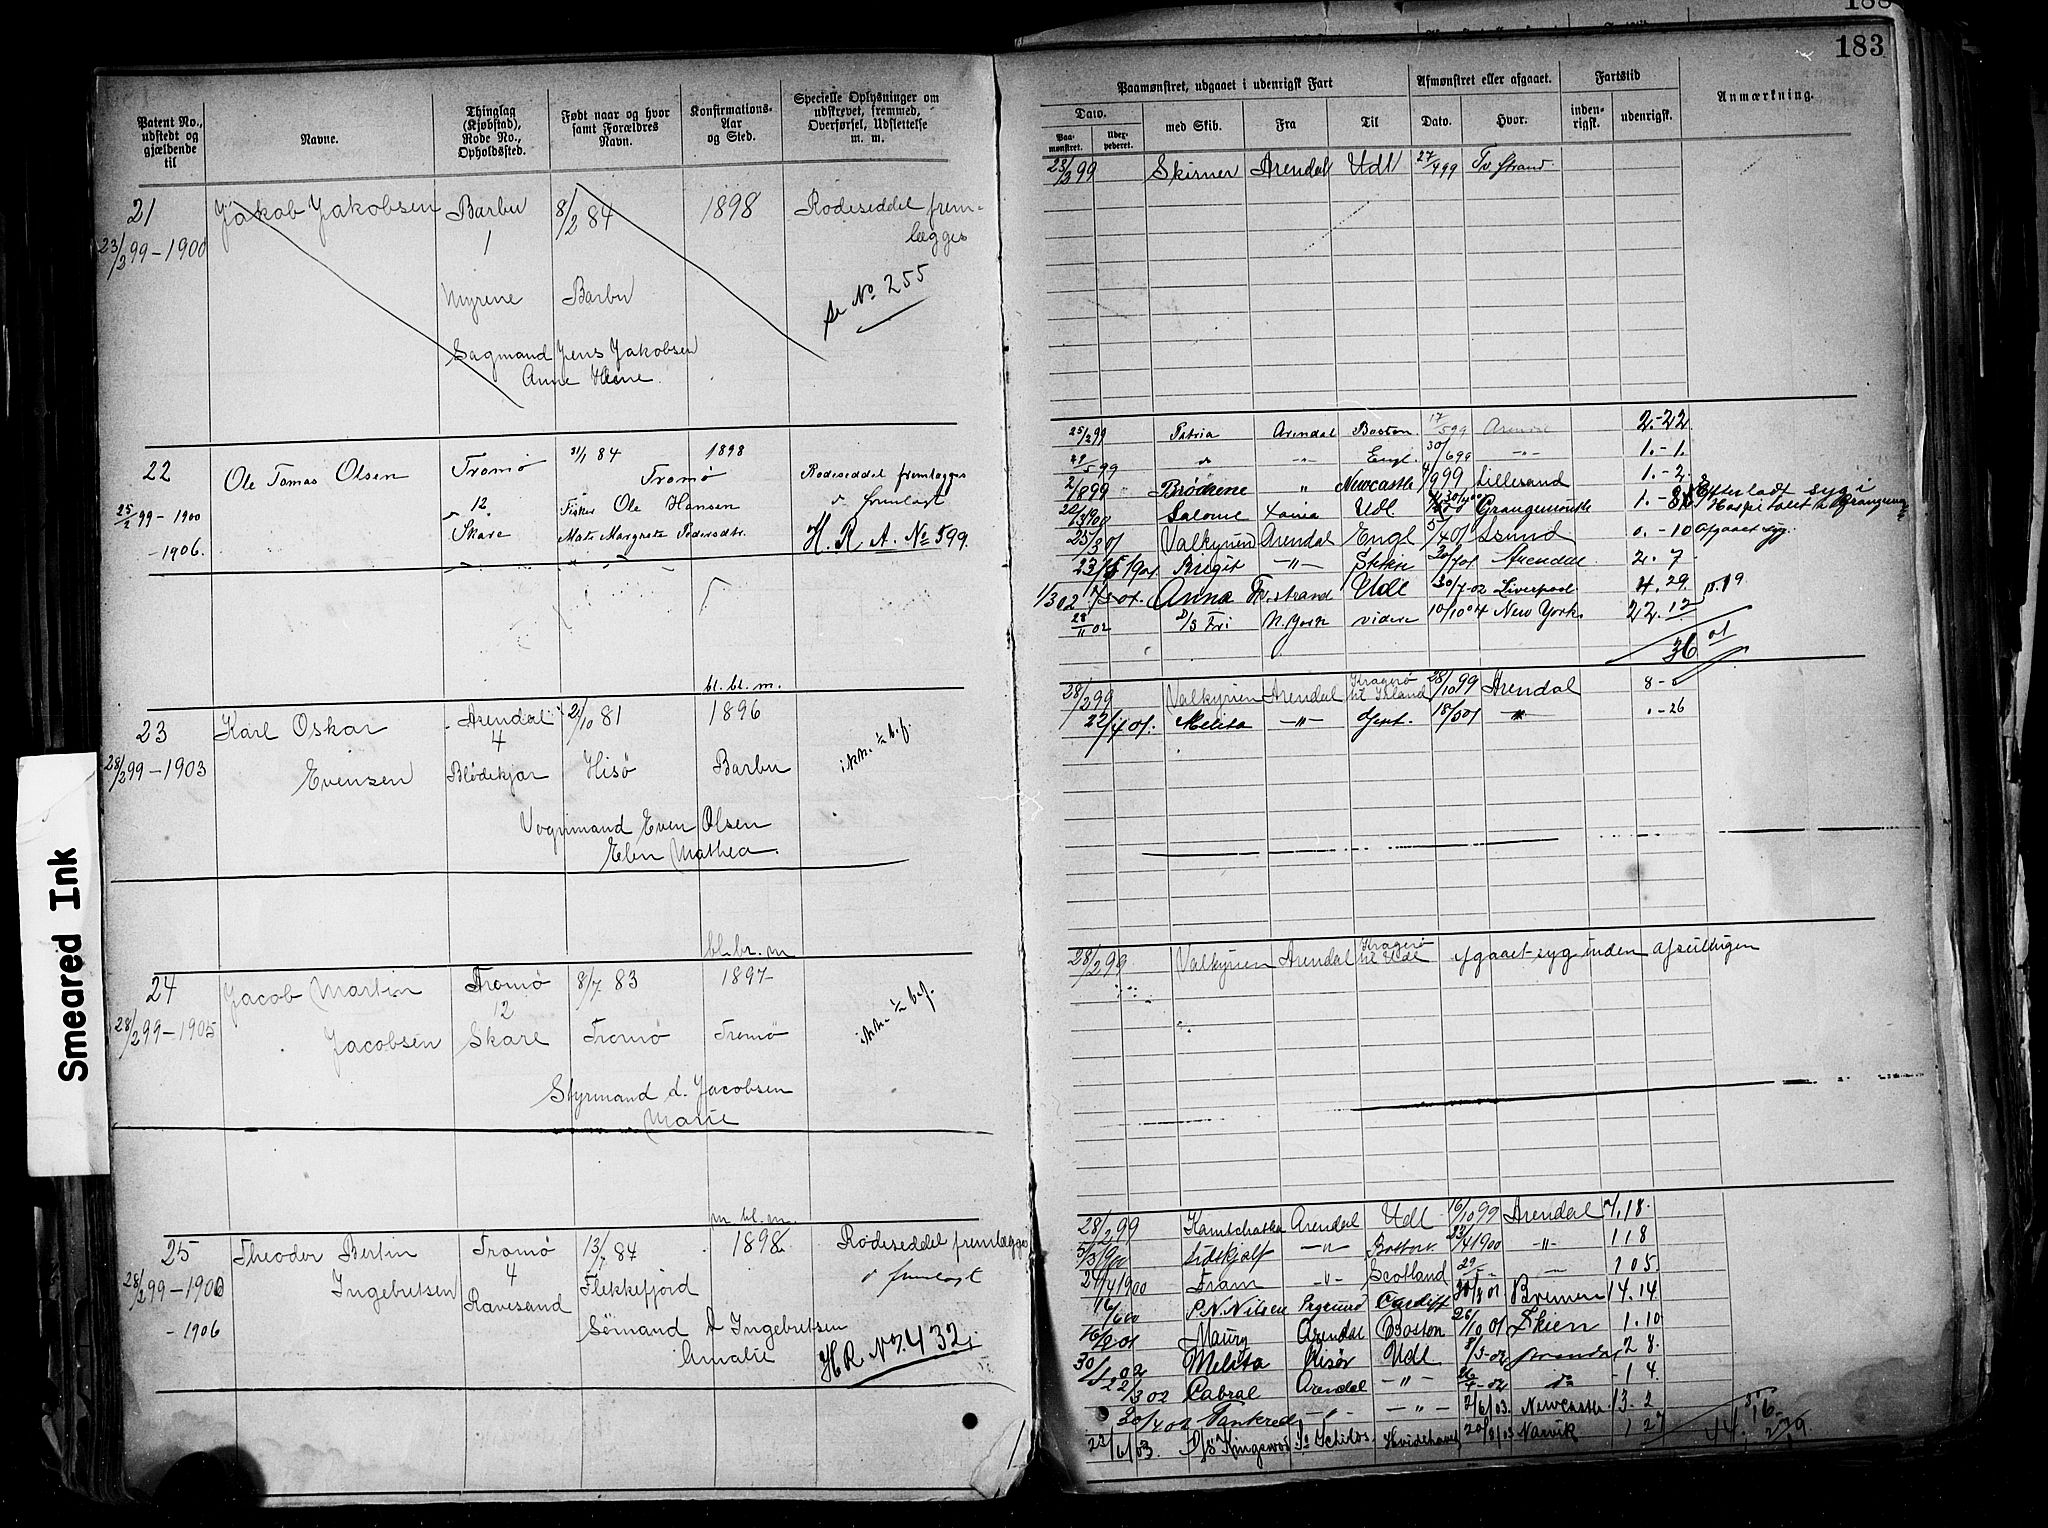 188
183
Patent No., udstedt og gjældende til
Navne.
Thinglag (Kjøbstad), Rode No., Opholdssted.
Født naar og hvor samt Forældres Navn.
Konfirmations-Aar og Sted.
Specielle Oplysninger om udskrevet, fremmed, Overførsel, Udslettelse m. m.
21
23/2 99 – 1900
Jakob Jakobsen
Barbu
1
Myrene
8/2 84
Barbu
1898
Rodeseddel frem-
lægges
se No. 255
Sagmand Jens Jakobsen
Anne
22
25/2 99 – 1900
– 1906.
Ole Tomas Olsen
Tromø
12
Skare
31/1 84
Tromø
Fisker Ole Hansen
Margrete Pedersdtr.
1898
Rodeseddel fremlægges
fremlagt
H. R. A. No 599.
bl. bl. m.
23
28/2 99 – 1903
Karl Oskar
Evensen
Arendal
4
Blødekjær
21/10 81
Hisø
1896
Barbu
ikke ½ bef.
Vognmand Even Olsen
Elen Mathea.
bl. br. m
24
28/2 99 – 1905
Jacob Martin
Jacobsen
Tromø
12
Skare
8/7 83
Tromø
1897
Tromø
ikke ½ bef.
Styrmand d. Jacobsen
Marie
m. bl. m.
25
28/2 99 – 1900
– 1906
Theodor Bertin
Ingebretsen
Tromø
4
Ravesand
13/7 84
Flekkefjord
1898
Rodeseddel fremlægges
fremlagt
Sømand A Ingebretsen
Amalie
H.R. No. 432
Paamønstret, udgaaet i udenrigsk Fart
Afmønstret eller afgaaet.
Fartstid
Anmærkning.
Dato.
Paa-mønstret.
med Skib.
Fra
Til
Dato.
Hvor.
inden-rigsk.
udenrigsk.
23/2 99 Skirner Arendal Udl 27/4 99 Tv.strand
25/2 99 Patria Arendal Boston. 17/5 99 2.-22
29/5 99 " Engl. 30/6 99 " 1.-1.
2/8 99 Brødrene " Newcastle 4/9 99 Lillesand 1.-2.
Salome Udl Grangemouth 1.-8 Efterladt syg i Hospitalet i Grangem.
25/3 01 Valkyrien Arendal Engl 5/4 01 0.-10 Afgaaet syg.
23/5 1901 Briget " 30/7 01 Arendal 2. 7
1/3 02 Anna Tv.strand Udl 30/7 02 Liverpool 4. 29.
28/11 02 D/S Fri N.York videre 10/10 04 New York 22. 12
36
28/2 99 Valkyrien Arendal Kragerø til Irland 28/10 99 Arendal 8-
22/4 01. Melita " 18/5 01 " . - 26
28/2 99 Valkyrien Arendal Kragerø til Udl afgaaet syg inden afseilingen
28/2 99 Kamtchatka Arendal Udl 16/10 99 Arendal 7.18.
5/3 900 Lidskjalf " Boston 23/4 1900 " 1 18
24/4 1900 Fram " Scotland 29/5 " 1 05
16/6 00 P.N. Nilsen Cardiff 30/8 01 Bremen 14.14
Maury Arendal Boston 26/10 01 Skien 1.10
30/1 02 Melita Risør Udl 8/3-02 Arendal 2 8.
22/3 02 Cabral Arendal " 26/4-02 - 1 4
30/4 02 Tankred " " 2/6/03. Newcastle 13. 2
23/6/03 D/S Kingswood Hvidehavet 20/8/03 Narvik 1 27
Smeared Ink